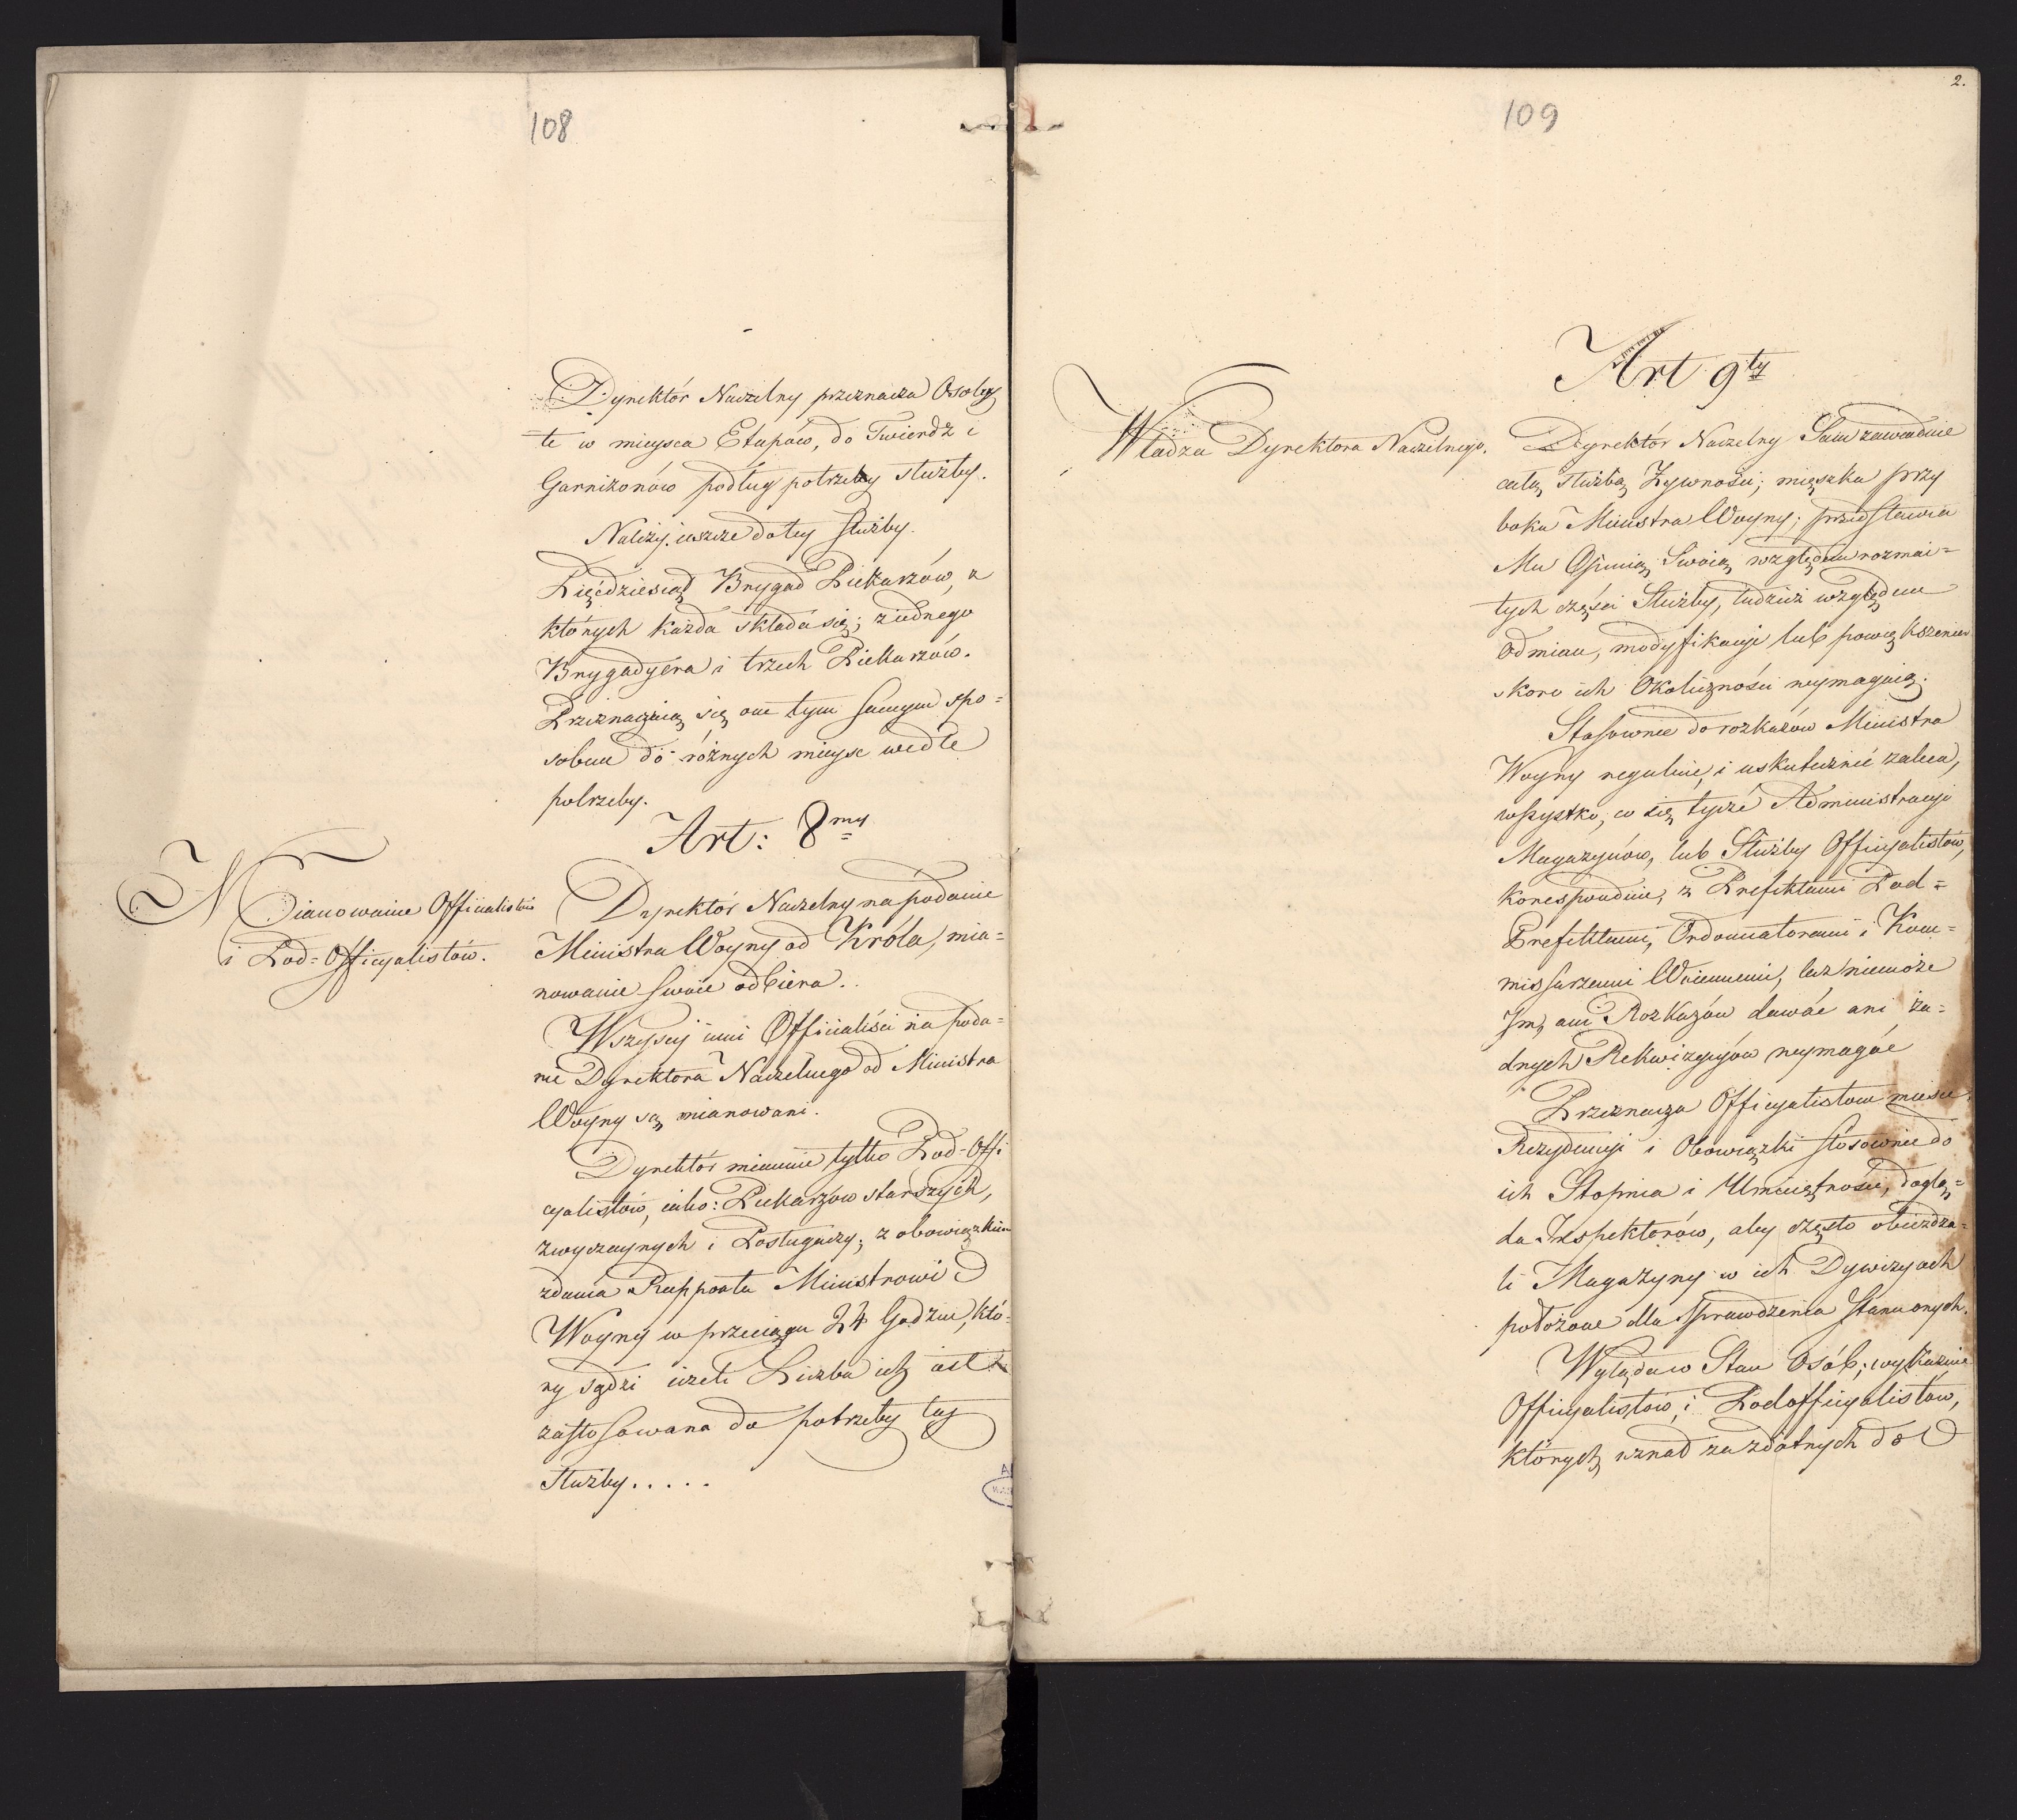 108
Dyrektór Naczelny przeznacza Osoby
te w mieysca Etapów, do Twierdz i
Garnizonów podług potrzeby służby.
Należy ieszcze do tey służby.
Pięćdziesiąt Brygad Piekarzów, z
których każda składa się; ziednego
Brygadyera i trzech Piekarzów.
Przeznaczaią się one tym samym spo=
sobem do różnych mieysc wedle
potrzeby.
Art: 8my
Mianowanie Officialistów
i Pod=Officyalistów.
Dyrektór Naczelny na podanie
Ministra Woyny od Króla, mia=
nowanie swoie odbiera.
Wszyscy inni Officialiści na poda=
nie Dyrektora Naczelnego od Ministra
Woyny są mianowani.
Dyrektór mianuie tylko Pod=Offi
cyalistów, iako: Piekarzów starszych,
zwyczaynych i Posługaczy; z obowiązkiem
zdania Rapportu Ministrowi
Woyny w przeciągu 24 Godzin, któ=
ry sądzi ieżeli Liczba ich iest
zastosowana do potrzeby tey
Służby.....
2.
109
Art 9ty
Władza Dyrektora Naczelnego.
Dyrektór Naczelny Sam zawiaduie
całą służbą Żywności; mięszka przy
boku Ministra Woyny; przedstawia
Mu Opinią Swoią względem rozmai=
tych części Służby, tudzież względem
odmian, modyfikacyi lub powiększenia
skoro ich Okoliczności wymagaią.
Stosownie do rozkazów Ministra
Woyny reguluie, i uskutecznić zaleca,
wszystko, co się tycze Administracyi
Magazynów, lub Służby Officyalistów,
koresponduie, z Prefektami Pod=
Prefektami, Ordonnatorami i Kom=
missarzami Woiennemi, lecz niemoże
Im, ani Rozkazów dawać ani ża=
dnych Rekwizycyów wymagać
Przeznacza Officyalistom miesce
Rezydencyi i Obowiązki stosownie do
ich Stopnia i Umieiętności, doglą=
da Inspektorów, aby często obieżdża=
li Magazyny w ich Dywizyach
położone dla sprawdzenia stanu onych.
Wyglądaw Stan Osób; wykazuie
Officyalistów, i Podofficyalistów,
których uznał za zdatnych do